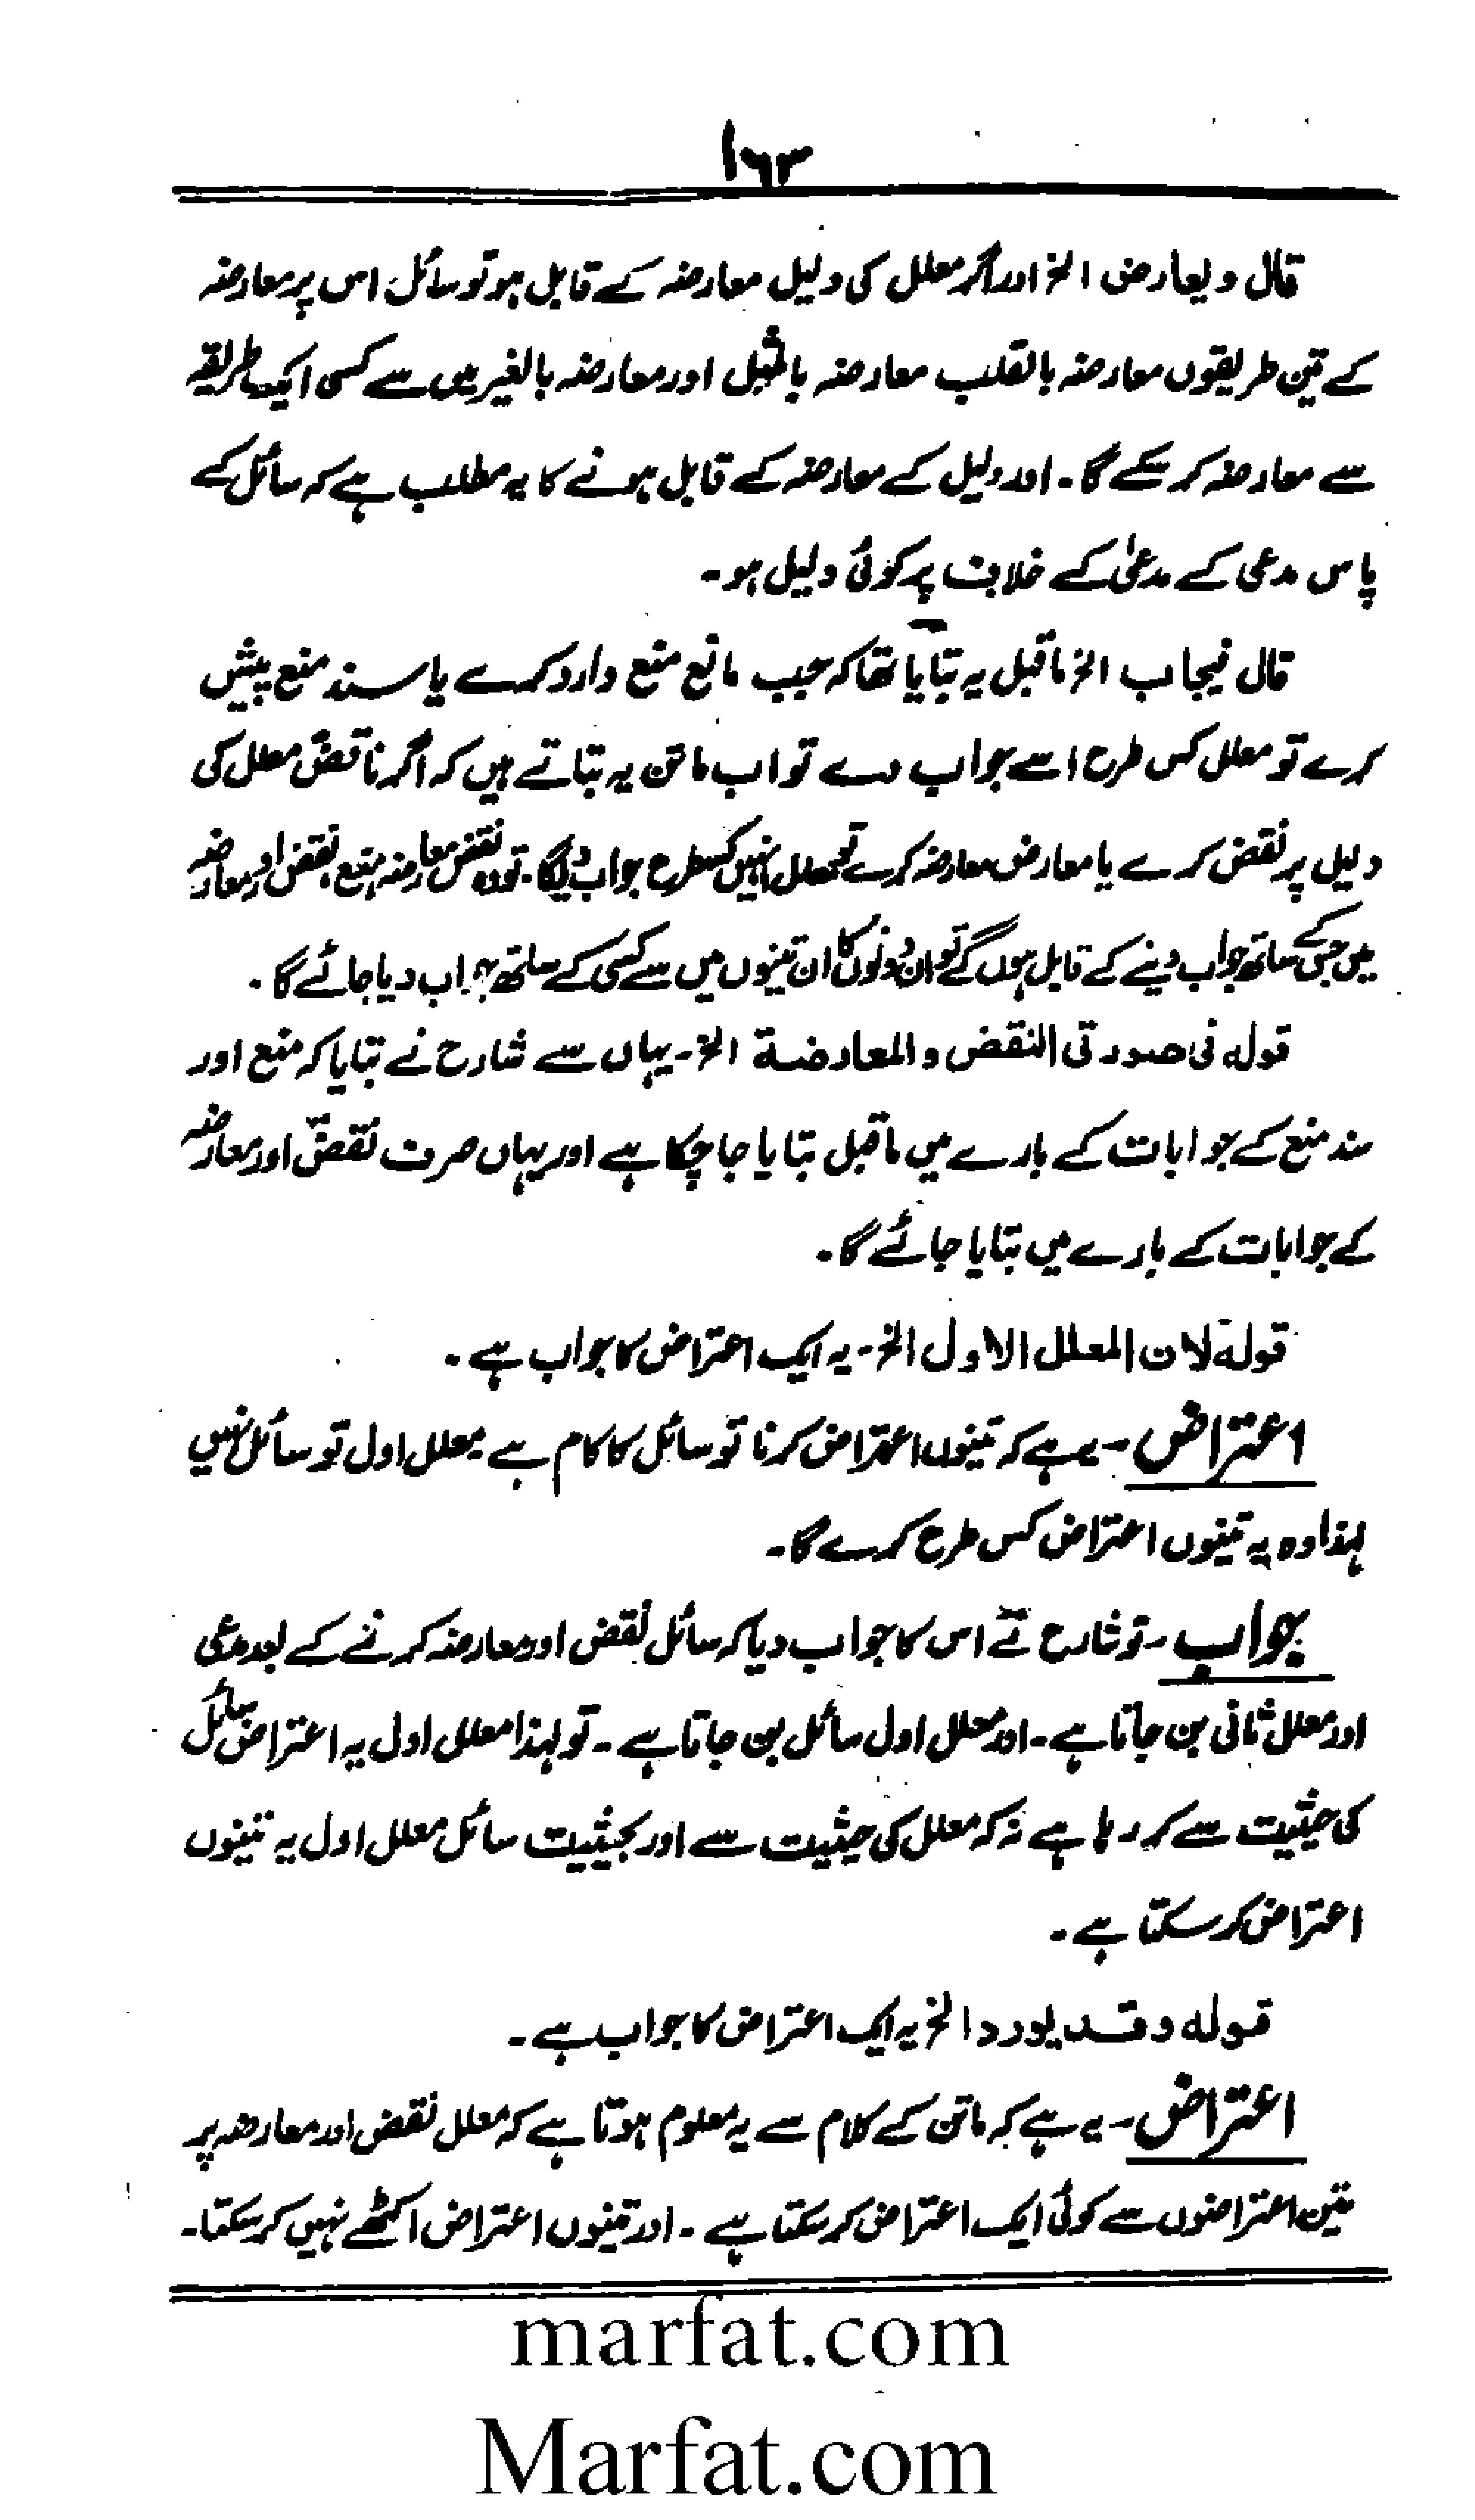 ۱۶۳
قال ويعارض الخ اور اگر معلل کی دلیل معارضہ کے قابل ہو تو سائل اس پر معارضہ
کے تین طریقوں معارضہ بالقلب معارضہ بالمثل اور معارضہ بالغیر میں سے کسی ایک طریقہ
سے معارضہ کر سکے گا۔ اور دلیل کے معارضہ کے قابل ہونے کا یہ مطلب ہے کہ سائل کے
پاس مدعی کے مدعیٰ کے خلاف پر کوئی دلیل ہو۔
قال فیجاب الخ ماقبل یہ بتایا تھا کہ جب مانع منع وارد کرے یا سند منع پیش
کرے تو معلل کس طرح اسے جواب دے تو اب ماتن یہ بتاتے ہیں کہ اگر ناقض معلل کی
دلیل پر نقض کرے یا معارض معارضہ کرے تو معلل انہیں کسطرح جواب دیگا۔ تو وہ نقض معارضہ منع، نقض اور معارضہ
میں جس کے ساتھ جواب دینے کے قابل ہوں گے تو ان دونوں کا ان تینوں میں سے کسی کے ساتھ جواب دیا جائے گا۔
قوله فی صورتی النقض والمعارضة الخ۔ یہاں سے شارح نے بتایا کہ منع اور
سند منع کے جوابات کے بارے میں ماقبل بتایا جا چکا ہے اور یہاں صرف نقض اور معارضہ
کے جوابات کے بارے میں بتایا جائے گا۔
قوله لان المعلل الاول الخ۔ یہ ایک اعتراض کا جواب ہے۔
اعتراض۔ یہ ہے کہ تینوں اعتراض کرنا تو سائل کا کام ہے معلل اول تو سائل نہیں
لہذا وہ یہ تینوں اعتراض کس طرح کرے گا۔
جواب۔ تو شارح نے اس کا جواب دیا کہ سائل نقض اور معارضہ کرنے کے بعد مدعی
اور معلل ثانی بن جاتا ہے۔ اور معلل اول سائل بن جاتا ہے۔ تو لہذا معلل اول یہ اعتراض سائل
کی حیثیت سے کر رہا ہے نہ کہ معلل کی حیثیت سے اور بحیثیت سائل معلل اول یہ تینوں
اعتراض کر سکتا ہے۔
قوله وقد یورد الخ یہ ایک اعتراض کا جواب ہے۔
اعتراض۔ یہ ہے کہ ماتن کے کلام سے یہ معلوم ہوتا ہے کہ معلل نقض اور معارضہ پر
تین اعتراضوں سے کوئی ایک اعتراض کر سکتا ہے۔ اور تینوں اعتراض اکٹھے نہیں کر سکتا۔
marfat.com
Marfat.com